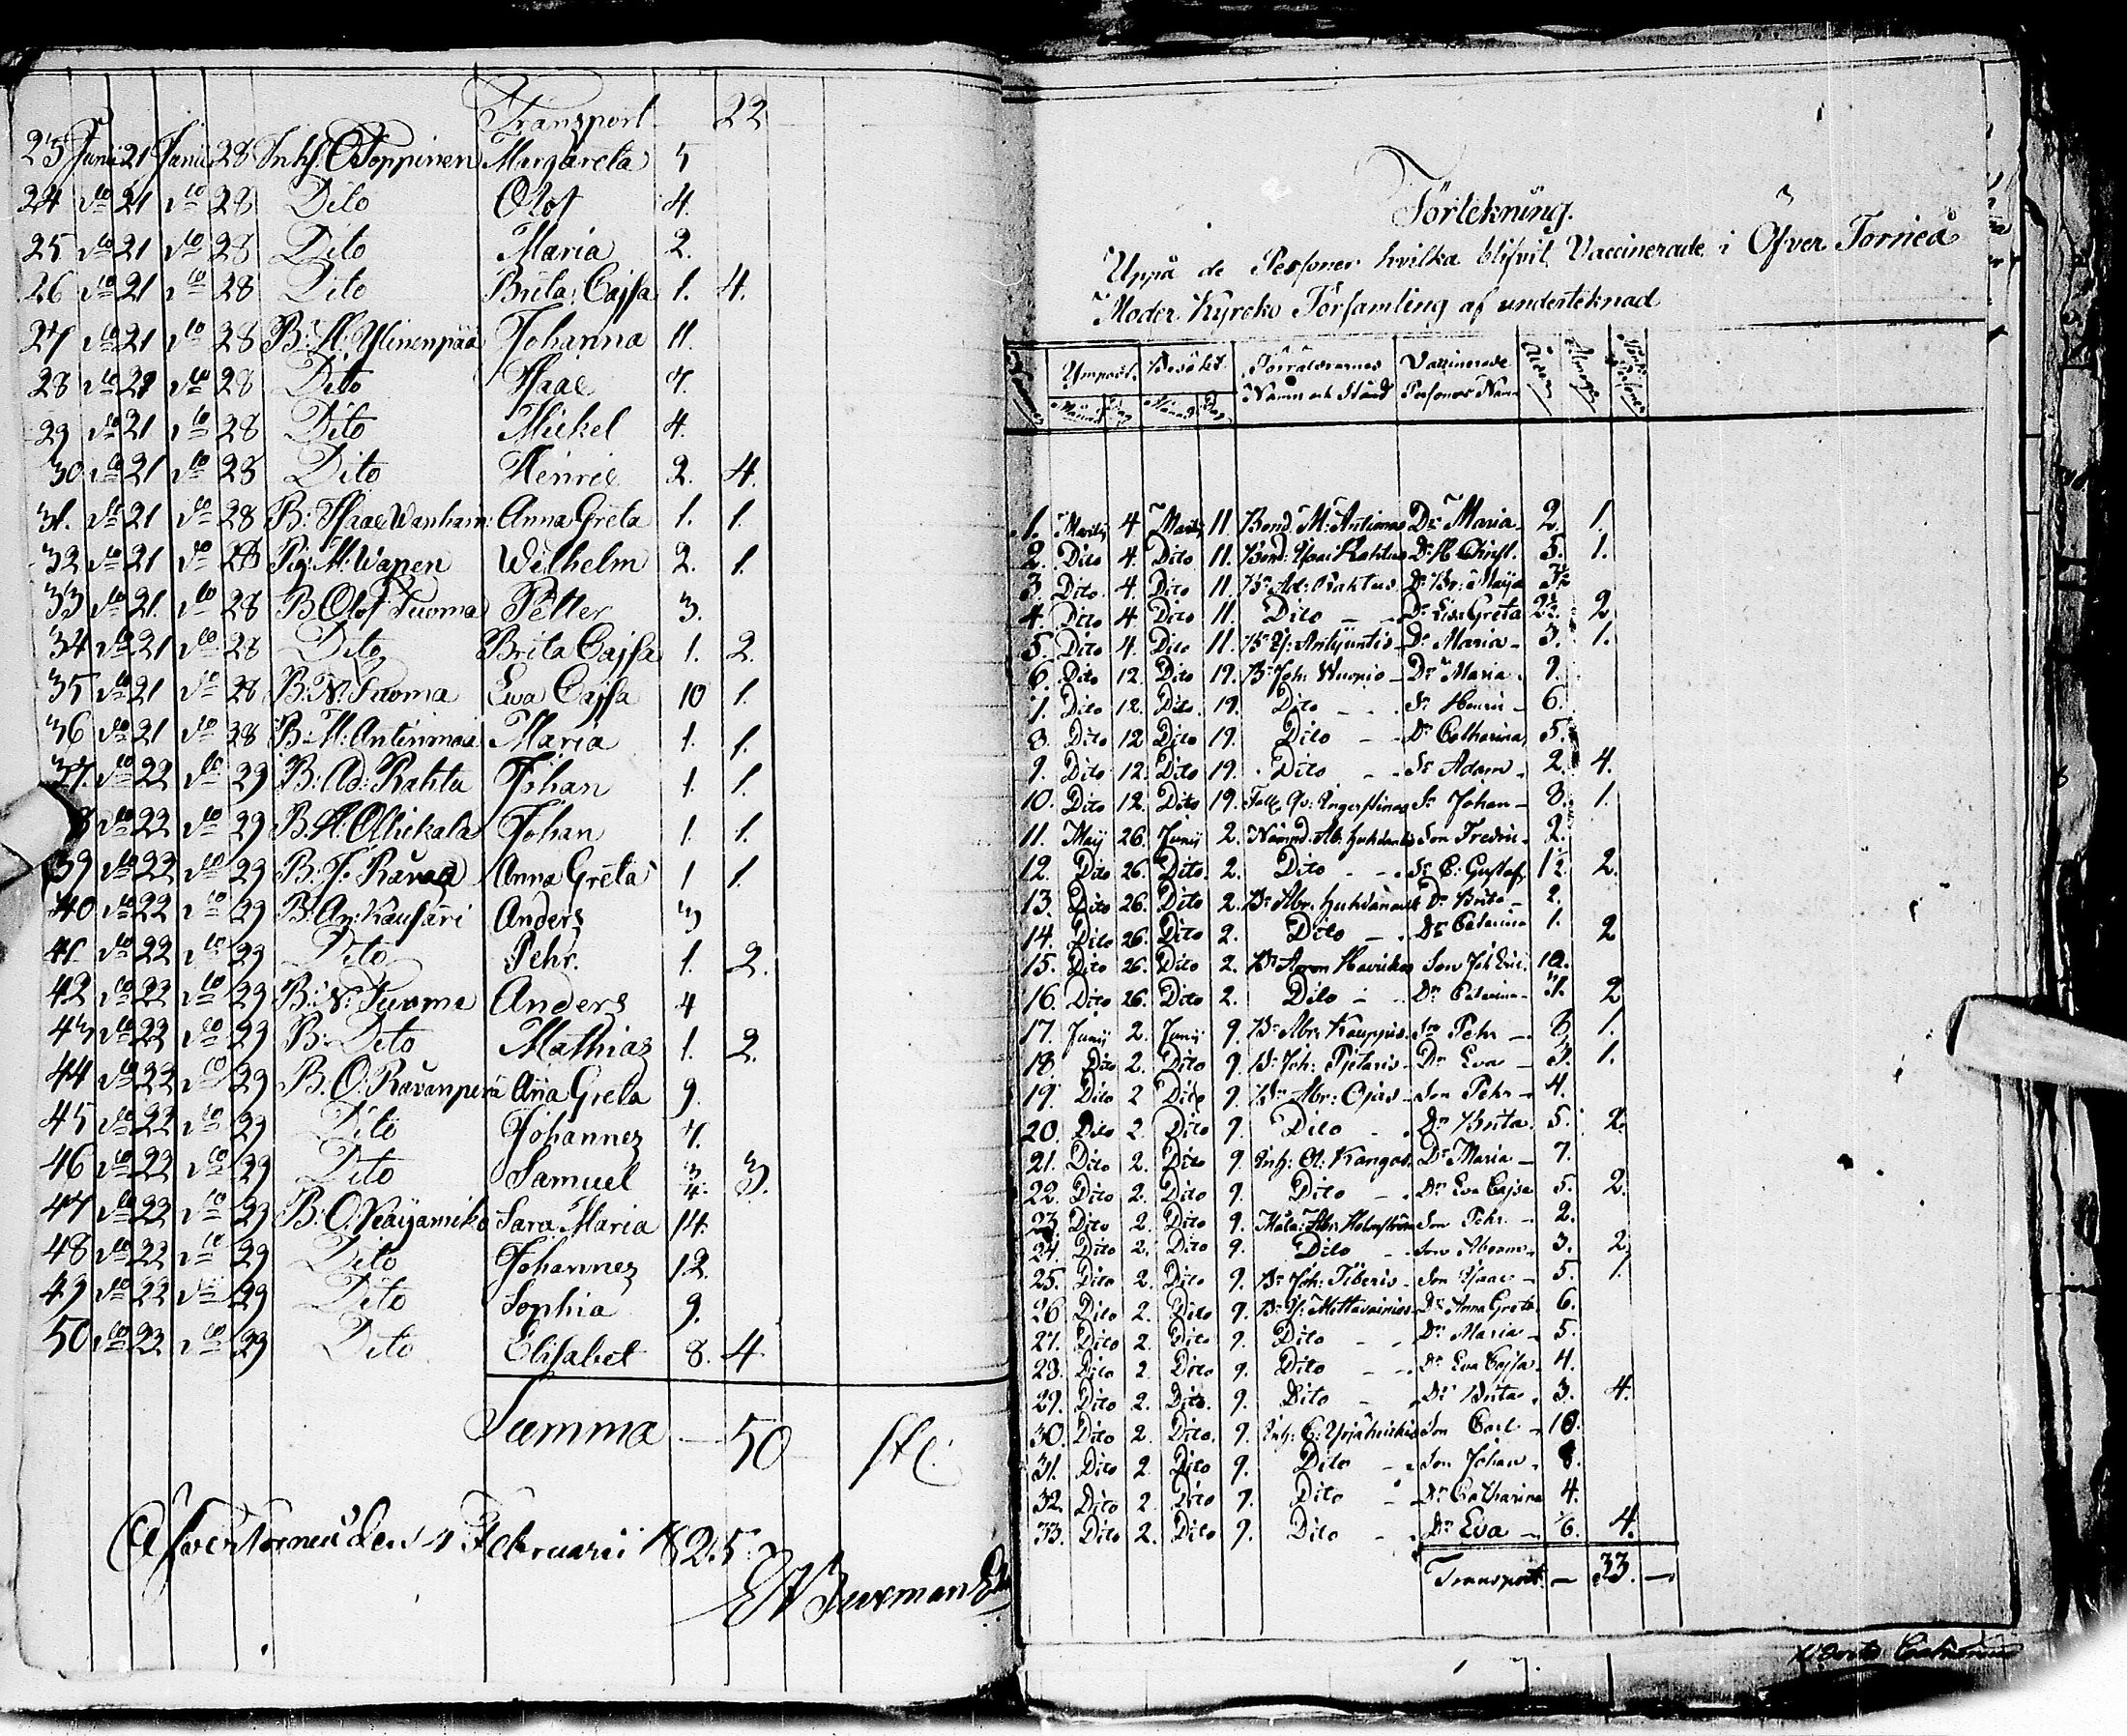 Transport 22
23 Junii 21 Junii 28 Inhs. O Poppinen Margareta 5
24 do 21 do 28 Dito Olof 4.
25 do 21 do 28 Dito Maria 2.
26 do 21 do 28 Dito Brita Cajsa 1. 4.
27 do 21 do 28 B: H: Ylinenpää Johanna 11.
28 do 21 do 28 Dito Isaac 7.
29 do 21 do 28 Dito Mickel 4.
30 do 21 do 28 Dito Henric 2. 4.
31. do 21 do 28 B: Isaac Wanham: Anna Greta 1. 1.
32 do 21 do 28 Pig M: Wapen Wilhelm 2. 1.
33 do 21. do 28 B Olof Tuoma Petter 3.
34 do 21 do 28 Dito Brita Cajsa 1. 2.
35 do 21 do 28 B. N. Tuoma Eva Cajsa 10 1.
36 do 21 do 28 B. M. Antinmaa Maria 1. 1.
37. do 22 do 29 B: Ad: Rahtu Johan 1. 1.
8 do 22 do 29 B. H: Ollickala Johan 1. 1.
39 do 22 do 29 B: J. Ravaa Anna Greta 1 1.
40 do 22 do 29 B. An: Kausari Anders 3
41 do 22 do 29 Dito Pehr. 1. 2.
42 do 22 do 29 B: N: Tuoma Anders 4
43 do 22 do 29 B. Dito Mathias 1. 2.
44 do 22 do 29 B. O. Ravanperä Aña Greta 9.
45 do 22 do 29 Dito Johannes 7.
46 do 22 do 29 Dito Samuel 3/4. 3.
47 do 22 do 29 B: O. Sara Maria 14.
48 do 22 do 29 Dito Johannes 12.
49 do 22 do 29 Dito Sophia 9.
50 do 22 do 29 Dito Elisabet 8. 4
Summa — 50
Öfvertorneå den 4 Februarii 1825.
Förtekning.
Uppå de Personer hvilka blifvit Vaccinerade i Öfver Torneå
Moder Kyrcko Församling af underteknad
Ympadt. Besökt. Föräldrarnes Vaccinerade
Månad Dag Månad Dag Namn och Stånd Personers Namn
1. Martij 4 Martij 11. Bond. M: Antinmaa Dr Maria 2. 1.
2. Dito 4. Dito 11. Bond: Isaac Rahtus Dr H Christ. 5. 1.
3. Dito 4. Dito 11. Br Ad: Rahtus Dr Br: Maija
4. Dito 4. Dito 11. Dito — Dr Eva Greta 2
5. Dito 4. Dito 11. Dr Maria 3. 1.
6. Dito 12. Dito 19. Br Joh. Wuopio Dr Maria
7. Dito 12. Dito. 19. Dito — Sn Henric 6.
8. Dito 12 Dito 19. Dito — Dr Catharina 5.
9. Dito 12. Dito 19. Dito — Sn Adam 2. 4.
10. Dito 12. Dito 19. Sn Johan 8. 1.
11. Maij 26. Junij 2. Nämnd. Ab. Son Fredric 2.
12. Dito 26. Dito. 2. Dito — Sn C: Gustaf 1½. 2.
13. Dito 26. Dito 2. Br Abr. Dr Brita 2.
14. Dito 26. Dito 2. Dito — Dr Catarina 1. 2
15. Dito 26. Dito 2. Br Aron Son Joh Eric 10.
16. Dito 26. Dito 2. Dito — Dr Catarina 7. 2
17. Junij 2. Junij 9. Br Abr: Kauppis Son Pehr 1.
18 Dito 2. Dito 9. Br Joh: Pjetaris Dr Eva 3. 1.
19. Dito 2 Dito 9. Br Abr: Ojas Son Pehr 4.
20. Dito 2. Dito 9. Dito — Dr Brita 5. 2.
21. Dito 2. Dito 9. Inh: Ol: Kangas Dr Maria 7.
22. Dito 2. Dito 9. Dito — Dr Eva Cajsa 5. 2.
23. Dito 2. Dito 9. Holmström Son Pehr 2.
24. Dito 2. Dito 9. Dito — Son Abram 3. 2.
25. Dito 2. Dito 9. Br Joh: Siberis Son Isaac 5. 1.
26 Dito 2. Dito 9. Br Dr Anna Greta 6.
27. Dito 2. Dito 9. Dito — Dr Maria 5.
28. Dito 2. Dito 9. Dito — Dr Eva Cajsa 4.
29. Dito 2. Dito. 9. Dito — Dr Brita 3. 4.
30. Dito 2. Dito. 9. Inh: Son Carl 10.
31. Dito 2. Dito 9. Dito — Son Johan 8.
32. Dito 2. Dito 9. Dito — Dr Catharina 4.
33. Dito 2. Dito 9. Dito — Dr Eva 4.
Transport — 33. —